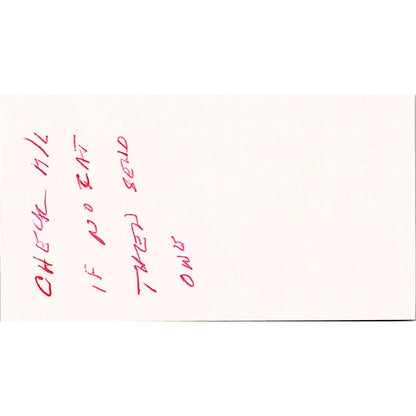 CHECK M/L
IF NO CAT
THEN SEND
ONE